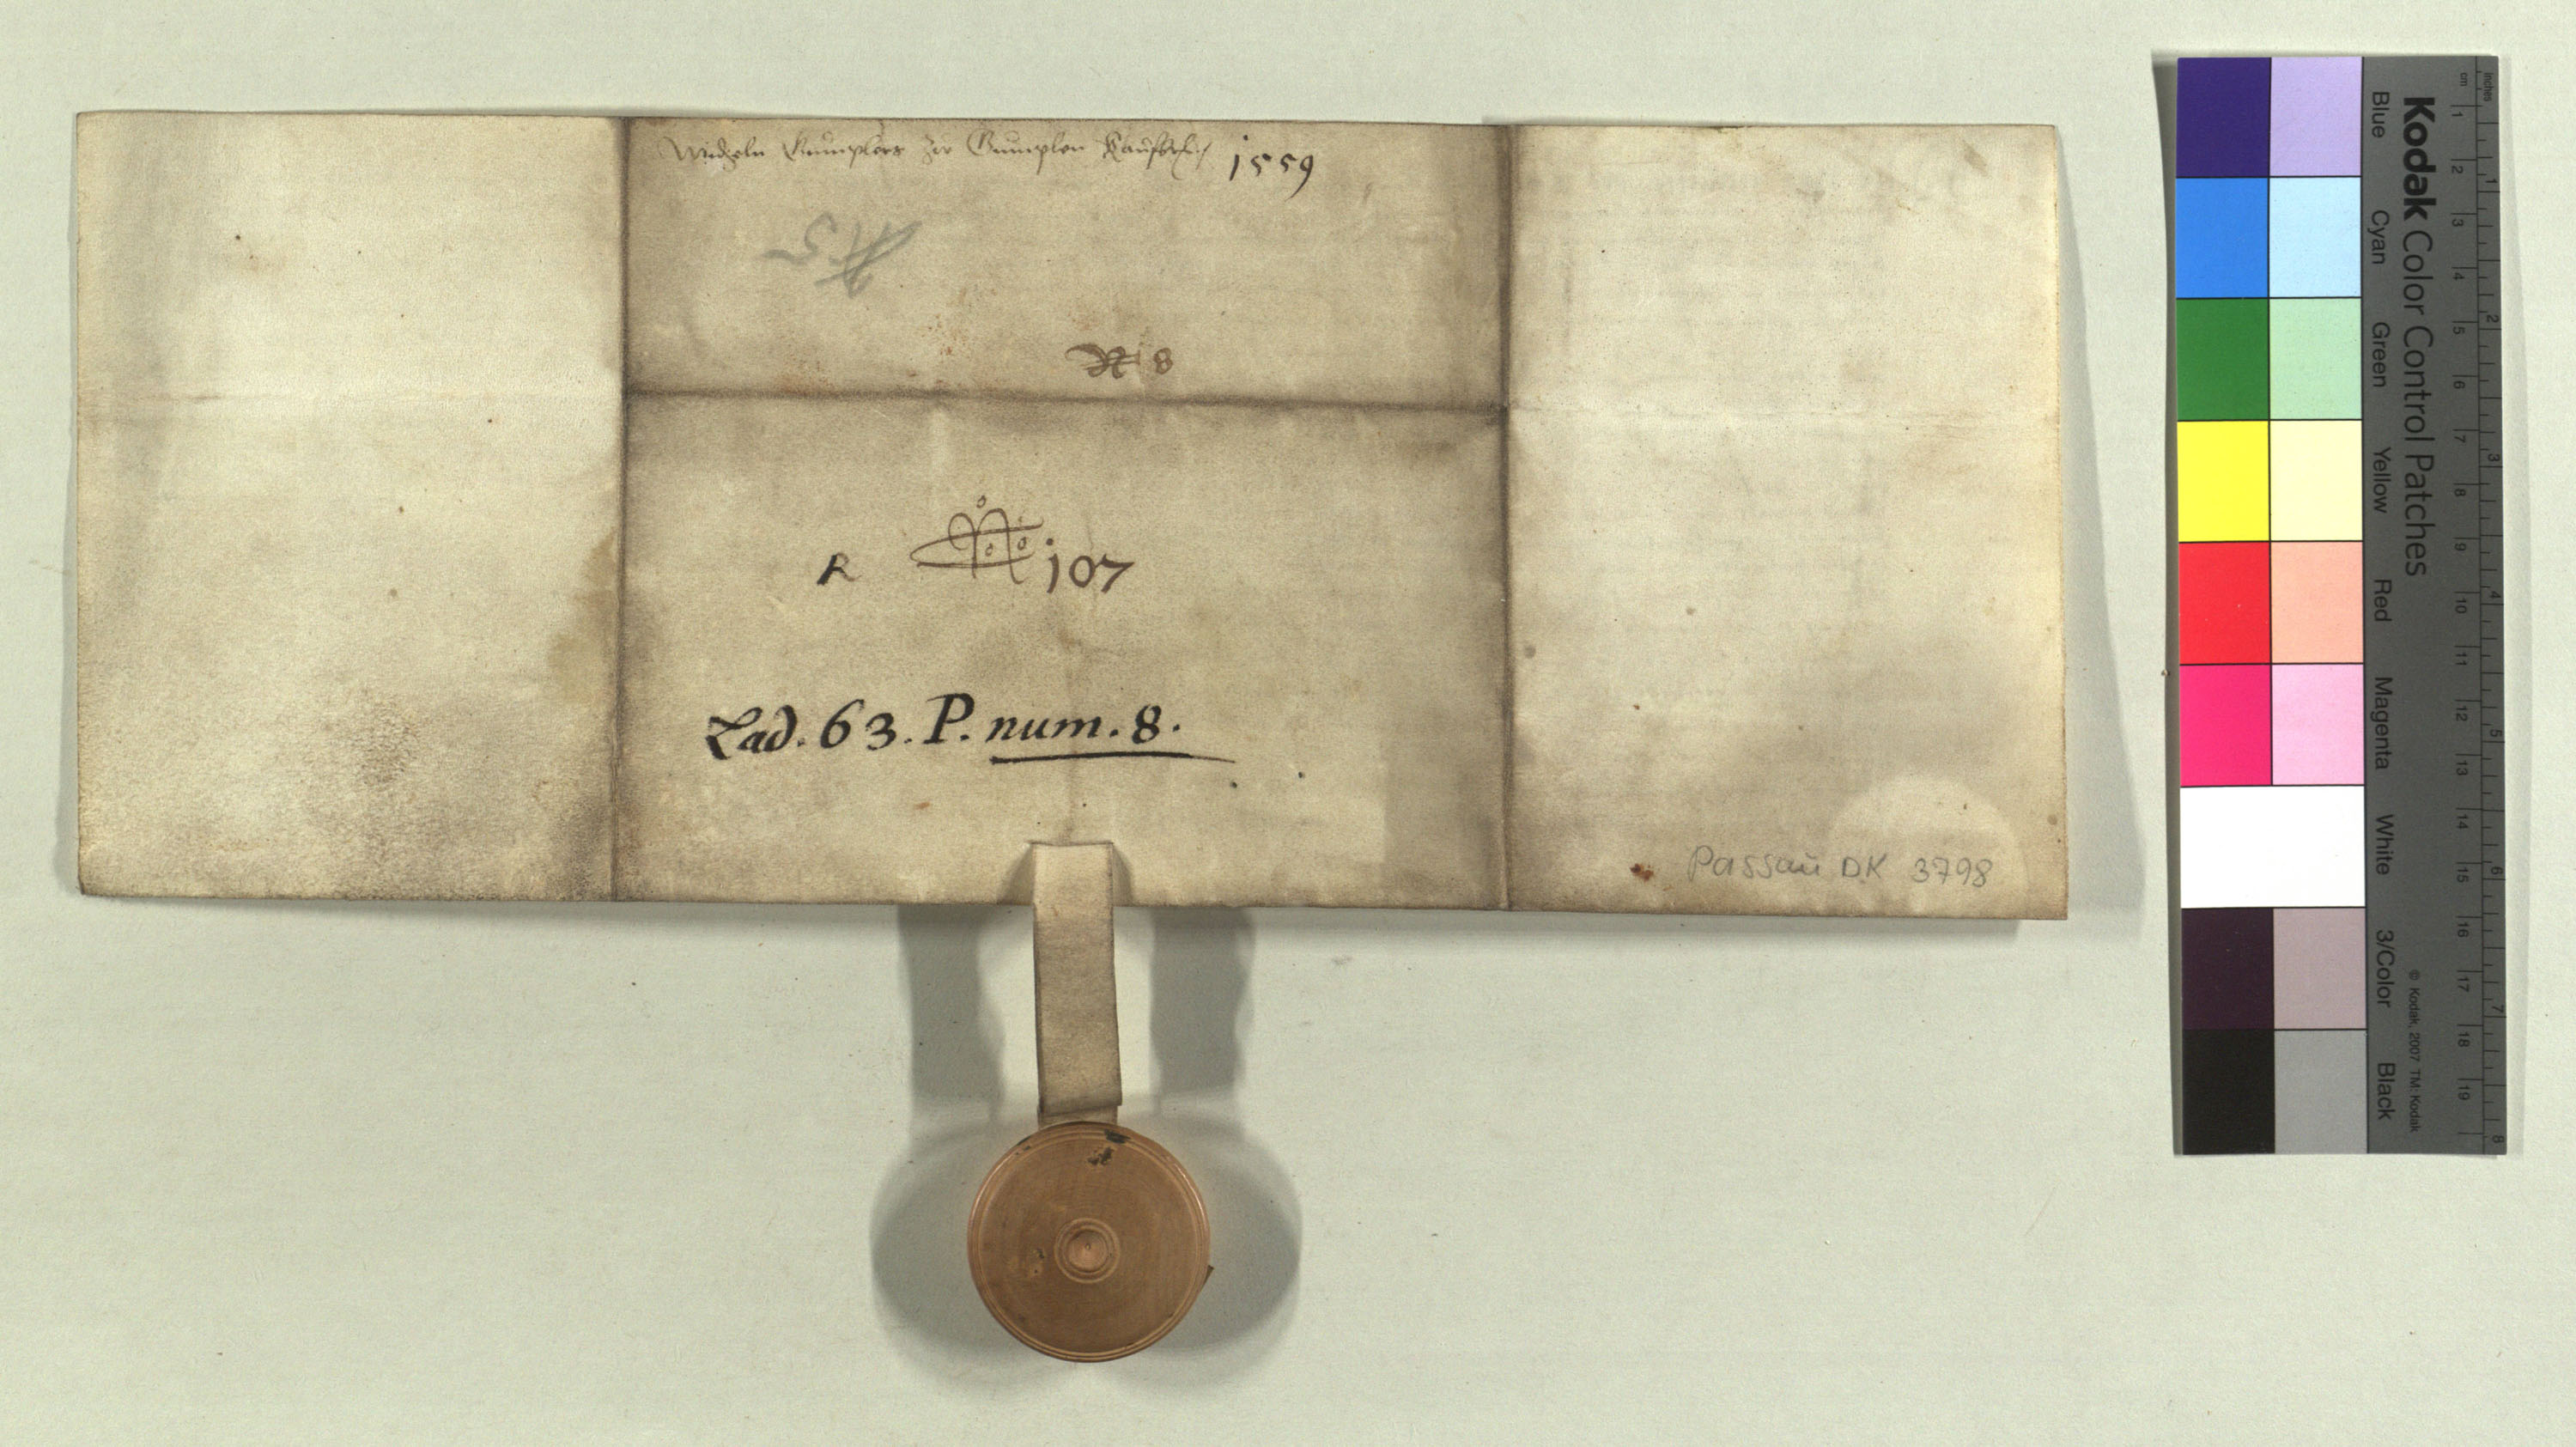 Gumplers zu Gumplen Kaufbrief 1559
N 8
R No 107
Lad. 63. P. num. 8.
Passau DK 3798
Kodak Color Control Patches
Blue Cyan Green Yellow Red Magenta White 3/Color Black
© Kodak, 2007 TM: Kodak
inches 1 2 3 4 5 6 7 8
cm 1 2 3 4 5 6 7 8 9 10 11 12 13 14 15 16 17 18 19